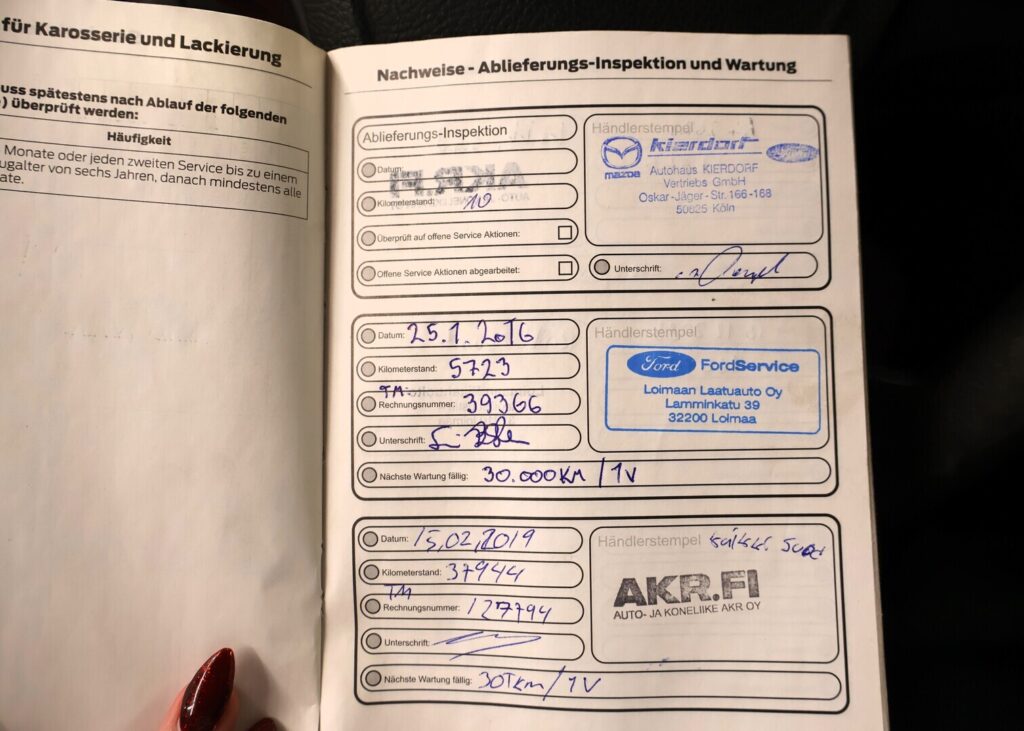 für Karosserie und Lackierung
uss spätestens nach Ablauf der folgenden
) überprüft werden:
Häufigkeit
Monate oder jeden zweiten Service bis zu einem
ugalter von sechs Jahren, danach mindestens alle
ate.
Nachweise - Ablieferungs-Inspektion und Wartung
Ablieferungs-Inspektion
Datum:
Kilometerstand: 10
Überprüft auf offene Service Aktionen:
Offene Service Aktionen abgearbeitet:
Händlerstempel
kierdorf
mazda
Autohaus KIERDORF
Vertriebs GmbH
Oskar-Jäger-Str. 166-168
50825 Köln
Unterschrift:
Datum: 25.1.2016
Kilometerstand: 5723
TM:
Rechnungsnummer: 39366
Unterschrift:
Nächste Wartung fällig: 30.000KM/1V
Händlerstempel
Ford FordService
Loimaan Laatuauto Oy
Lamminkatu 39
32200 Loimaa
Datum: 15,02,2019
Kilometerstand: 37944
TM
Rechnungsnummer: 127794
Unterschrift:
Nächste Wartung fällig: 30Tkm/1V
Händlerstempel
AKR.FI
AUTO- JA KONELIIKE AKR OY